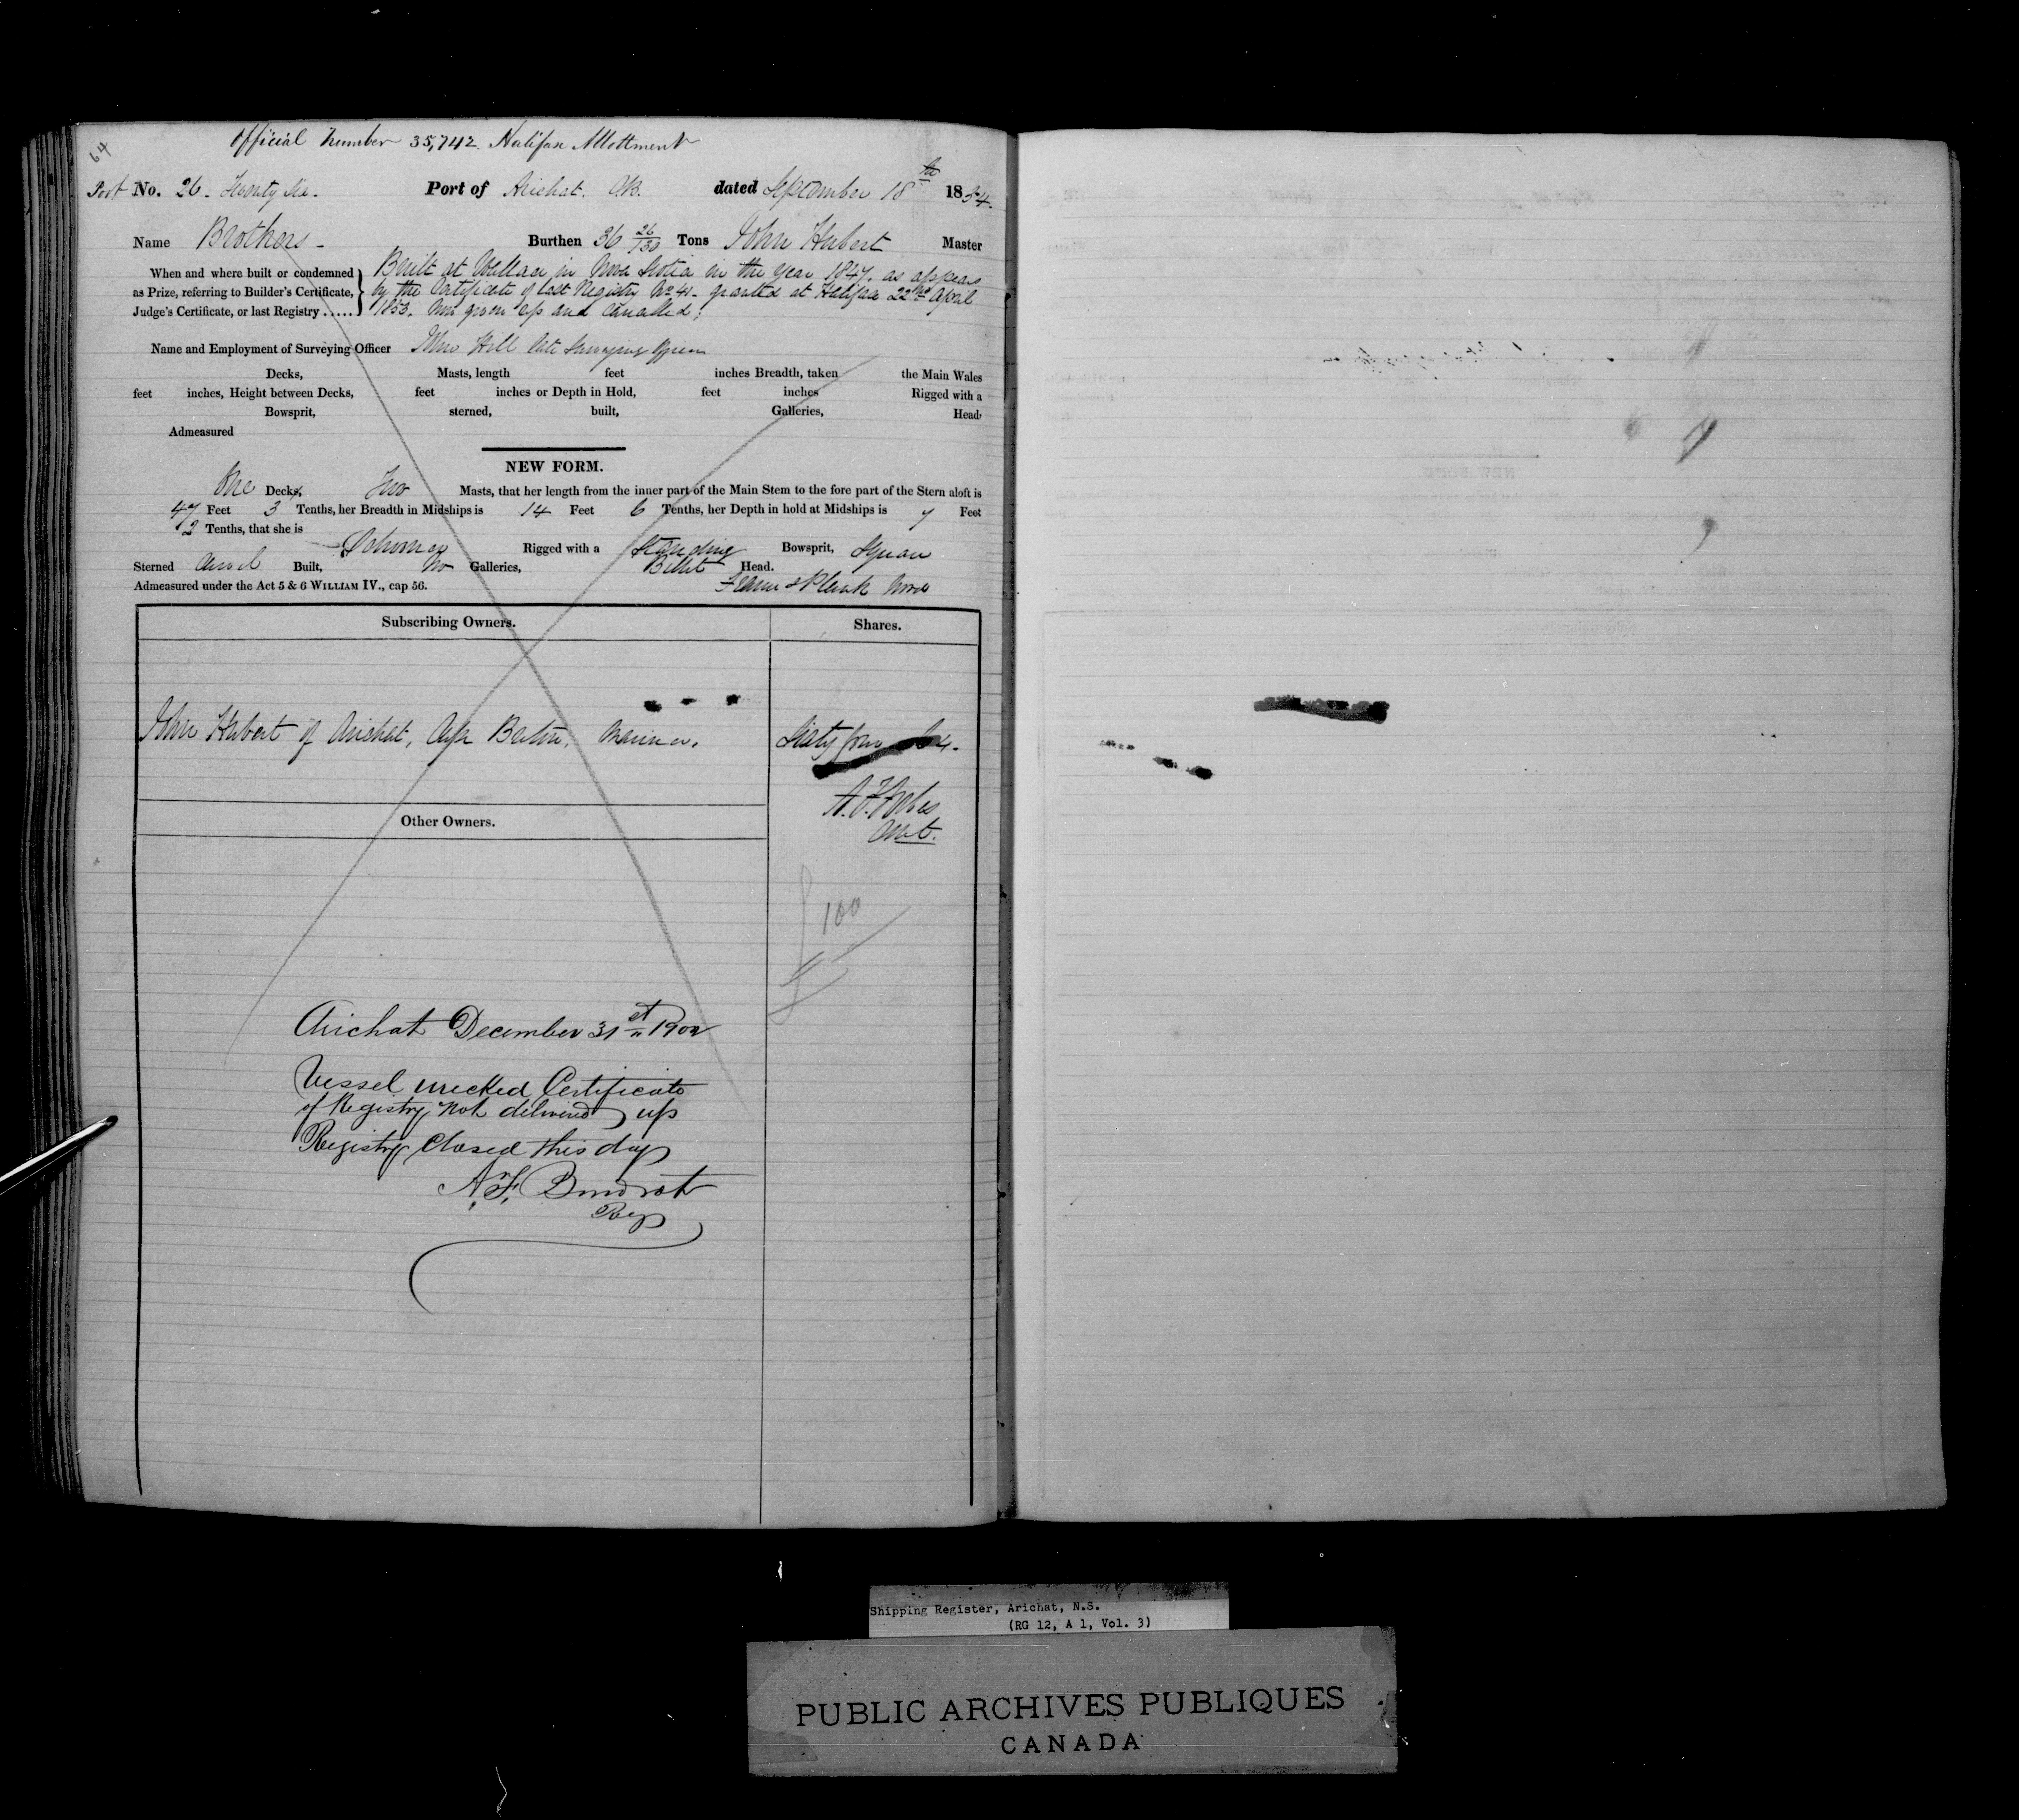 64
Official Number 35,742. Halifax Allottment
Port No. 26. Twenty Six. Port of Arichat. C.B. dated September 18th 1854.
Name Brothers - Burthen 36 26/130 Tons John Hubert Master
When and where built or condemned as Prize, referring to Builder's Certificate, Judge's Certificate, or last Registry .....
Built at Wallace in Nova Scotia in the Year 1847. as appears
by the Certificate of last Registry No 41. granted at Halifax 22nd April
1853. Now given up and Cancelled;
Name and Employment of Surveying Officer John Hill late Surveying Officer
Decks, Masts, length feet inches Breadth, taken the Main Wales
feet inches, Height between Decks, feet inches or Depth in Hold, feet inches Rigged with a
Bowsprit, sterned, built, Galleries, Head,
Admeasured
NEW FORM.
One Decks, Two Masts, that her length from the inner part of the Main Stem to the fore part of the Stern aloft is
47 Feet 3 Tenths, her Breadth in Midships is 14 Feet 6 Tenths, her Depth in hold at Midships is 7 Feet
2 Tenths, that she is Schooner Rigged with a Standing Bowsprit, Square
Sterned Carvel Built, No Galleries, Billet Head.
Admeasured under the Act 5 & 6 WILLIAM IV., cap 56. Frame & Plank Wood
Subscribing Owners. Shares.
John Hubert of Arichat, Cape Breton, Mariner. Sixty four 64.
Other Owners.
100
Arichat December 31st 1902
Vessel wrecked Certificate
of Registry not delivered up
Registry Closed this day
Reg
Shipping Register, Arichat, N.S.
(RG 12, A 1, Vol. 3)
PUBLIC ARCHIVES PUBLIQUES
CANADA